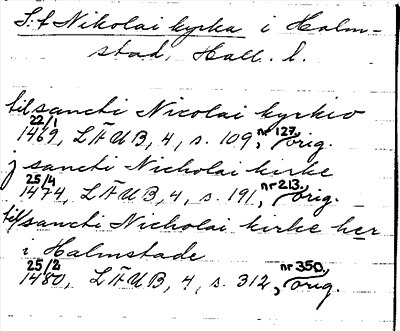 S:t Nikolai kyrka i Halm-
stad, Hall. l.
til sancti Nicolai kyrkio
22/1 1469, LÄUB, 4, s. 109, nr 127, orig.
j sancti Nicholai kirke
25/4 1474, LÄUB, 4, s. 191, nr 213, orig.
till sancti Nicholai kirke her
i Halmstade
25/2 1480, LÄUB, 4, s. 312, nr 350, orig.